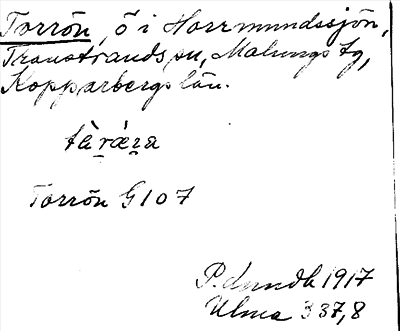 Torrön, ö i Horrmundssjön,
Transtrands sn, Malungs tg,
Kopparbergs län.
tàrǽra
Torrön G107
P. Lundh 1917
Ulma 337,8